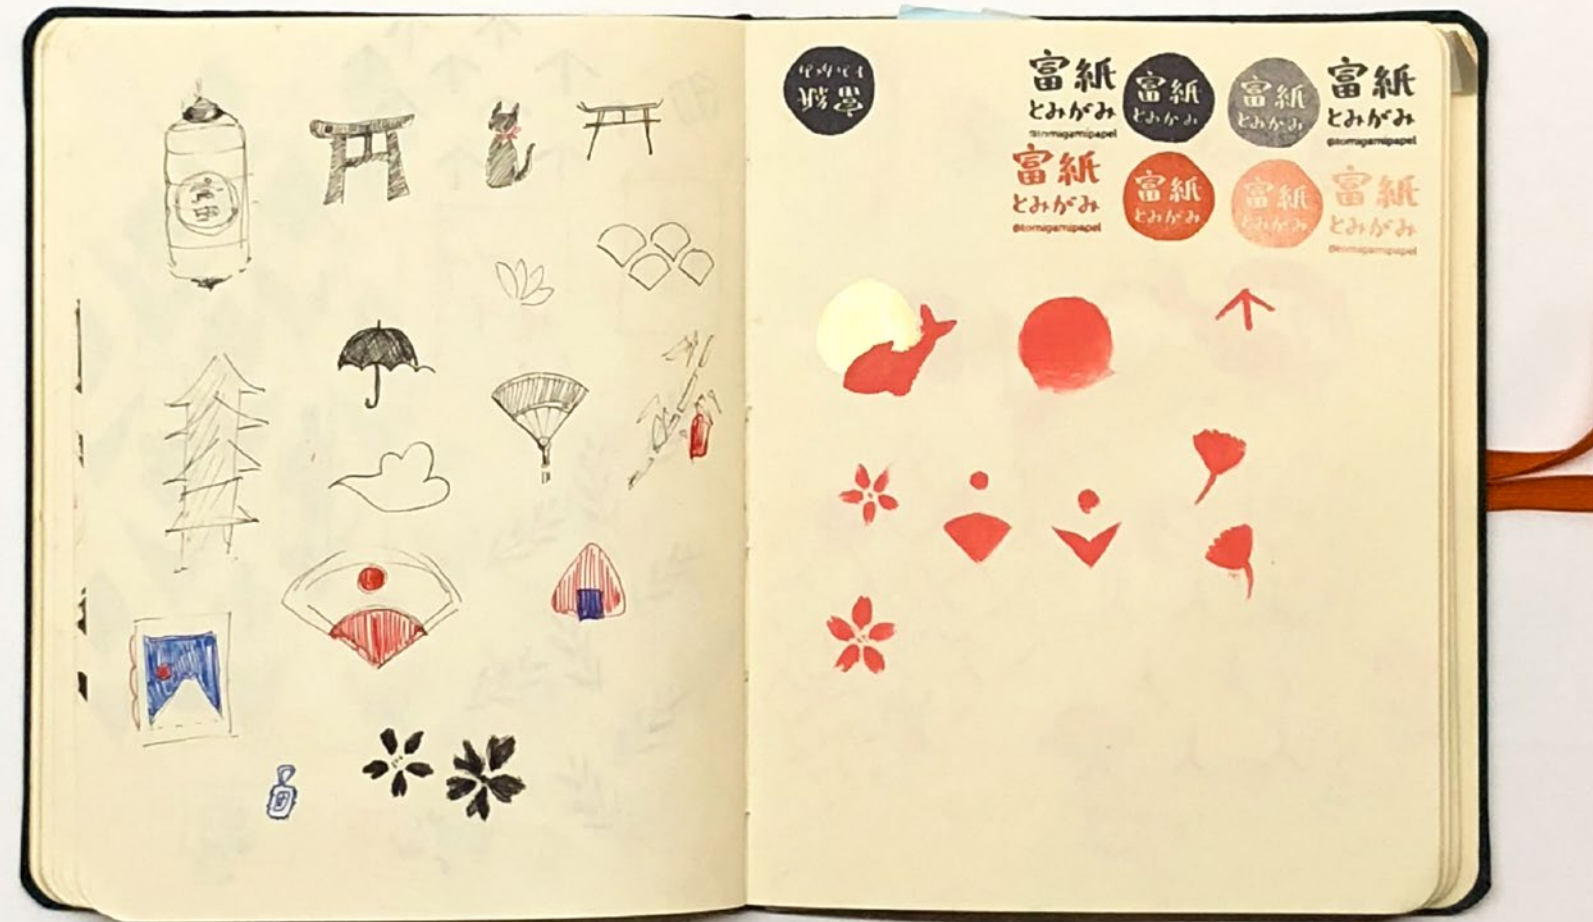 富紙
とみがみ
富紙
とみがみ
@tomigamipapel
富紙
とみがみ
富紙
とみがみ
富紙
とみがみ
@tomigamipapel
富紙
とみがみ
@tomigamipapel
富紙
とみがみ
富紙
とみがみ
富紙
とみがみ
@tomigamipapel